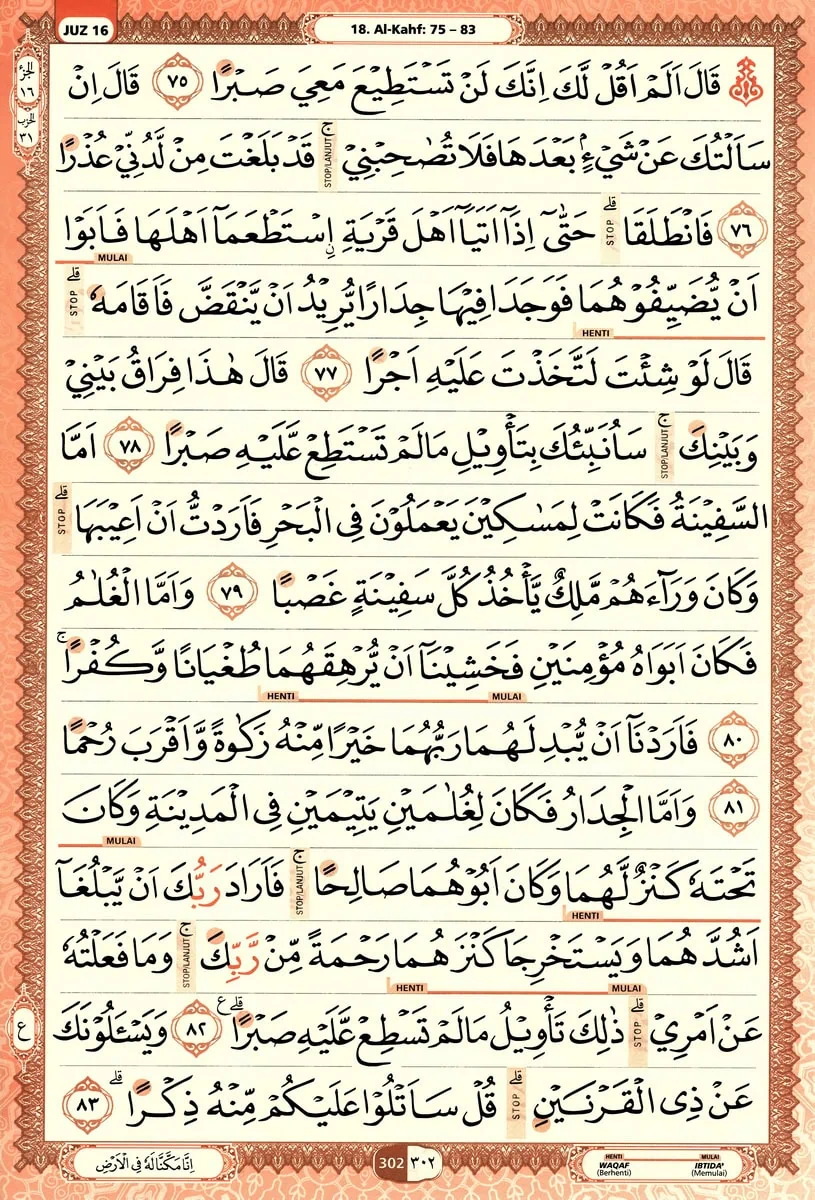 JUZ 16
18. Al-Kahf: 75 – 83
الجزء
١٦
الحزب
٣١
قَالَ اَلَمْ اَقُلْ لَّكَ اِنَّكَ لَنْ تَسْتَطِيْعَ مَعِيَ صَبْرًا ٧٥ قَالَ اِنْ
سَاَلْتُكَ عَنْ شَيْءٍۢ بَعْدَهَا فَلَا تُصٰحِبْنِيْ ۚ STOP/LANJUT قَدْ بَلَغْتَ مِنْ لَّدُنِّيْ عُذْرًا
٧٦ فَانْطَلَقَا ۗ STOP حَتّٰىٓ اِذَآ اَتَيَآ اَهْلَ قَرْيَةِ ِۨاسْتَطْعَمَآ اَهْلَهَا فَاَبَوْا
MULAI
اَنْ يُّضَيِّفُوْهُمَا فَوَجَدَا فِيْهَا جِدَارًا يُّرِيْدُ اَنْ يَّنْقَضَّ فَاَقَامَهٗ ۗ STOP
HENTI
قَالَ لَوْ شِئْتَ لَتَّخَذْتَ عَلَيْهِ اَجْرًا ٧٧ قَالَ هٰذَا فِرَاقُ بَيْنِيْ
وَبَيْنِكَ ۚ STOP/LANJUT سَاُنَبِّئُكَ بِتَأْوِيْلِ مَا لَمْ تَسْتَطِعْ عَّلَيْهِ صَبْرًا ٧٨ اَمَّا
السَّفِيْنَةُ فَكَانَتْ لِمَسٰكِيْنَ يَعْمَلُوْنَ فِى الْبَحْرِ فَاَرَدْتُّ اَنْ اَعِيْبَهَا ۗ STOP
وَكَانَ وَرَاۤءَهُمْ مَّلِكٌ يَّأْخُذُ كُلَّ سَفِيْنَةٍ غَصْبًا ٧٩ وَاَمَّا الْغُلٰمُ
فَكَانَ اَبَوَاهُ مُؤْمِنَيْنِ فَخَشِيْنَآ اَنْ يُّرْهِقَهُمَا طُغْيَانًا وَّكُفْرًا ۚ
MULAI HENTI
٨٠ فَاَرَدْنَآ اَنْ يُّبْدِلَهُمَا رَبُّهُمَا خَيْرًا مِّنْهُ زَكٰوةً وَّاَقْرَبَ رُحْمًا
٨١ وَاَمَّا الْجِدَارُ فَكَانَ لِغُلٰمَيْنِ يَتِيْمَيْنِ فِى الْمَدِيْنَةِ وَكَانَ
MULAI
تَحْتَهٗ كَنْزٌ لَّهُمَا وَكَانَ اَبُوْهُمَا صَالِحًا ۚ STOP/LANJUT فَاَرَادَ رَبُّكَ اَنْ يَّبْلُغَآ
HENTI
اَشُدَّهُمَا وَيَسْتَخْرِجَا كَنْزَهُمَا رَحْمَةً مِّنْ رَّبِّكَ ۚ STOP/LANJUT وَمَا فَعَلْتُهٗ
MULAI HENTI
عَنْ اَمْرِيْ ۗ STOP ذٰلِكَ تَأْوِيْلُ مَا لَمْ تَسْطِعْ عَّلَيْهِ صَبْرًا ۗ ࣖ ٨٢ وَيَسْـَٔلُوْنَكَ
ع
عَنْ ذِى الْقَرْنَيْنِ ۗ STOP قُلْ سَاَتْلُوْا عَلَيْكُمْ مِّنْهُ ذِكْرًا ۗ ٨٣
اِنَّا مَكَّنَّا لَهٗ فِى الْاَرْضِ
302 ٣٠٢
HENTI MULAI
WAQAF IBTIDA'
(Berhenti) (Memulai)